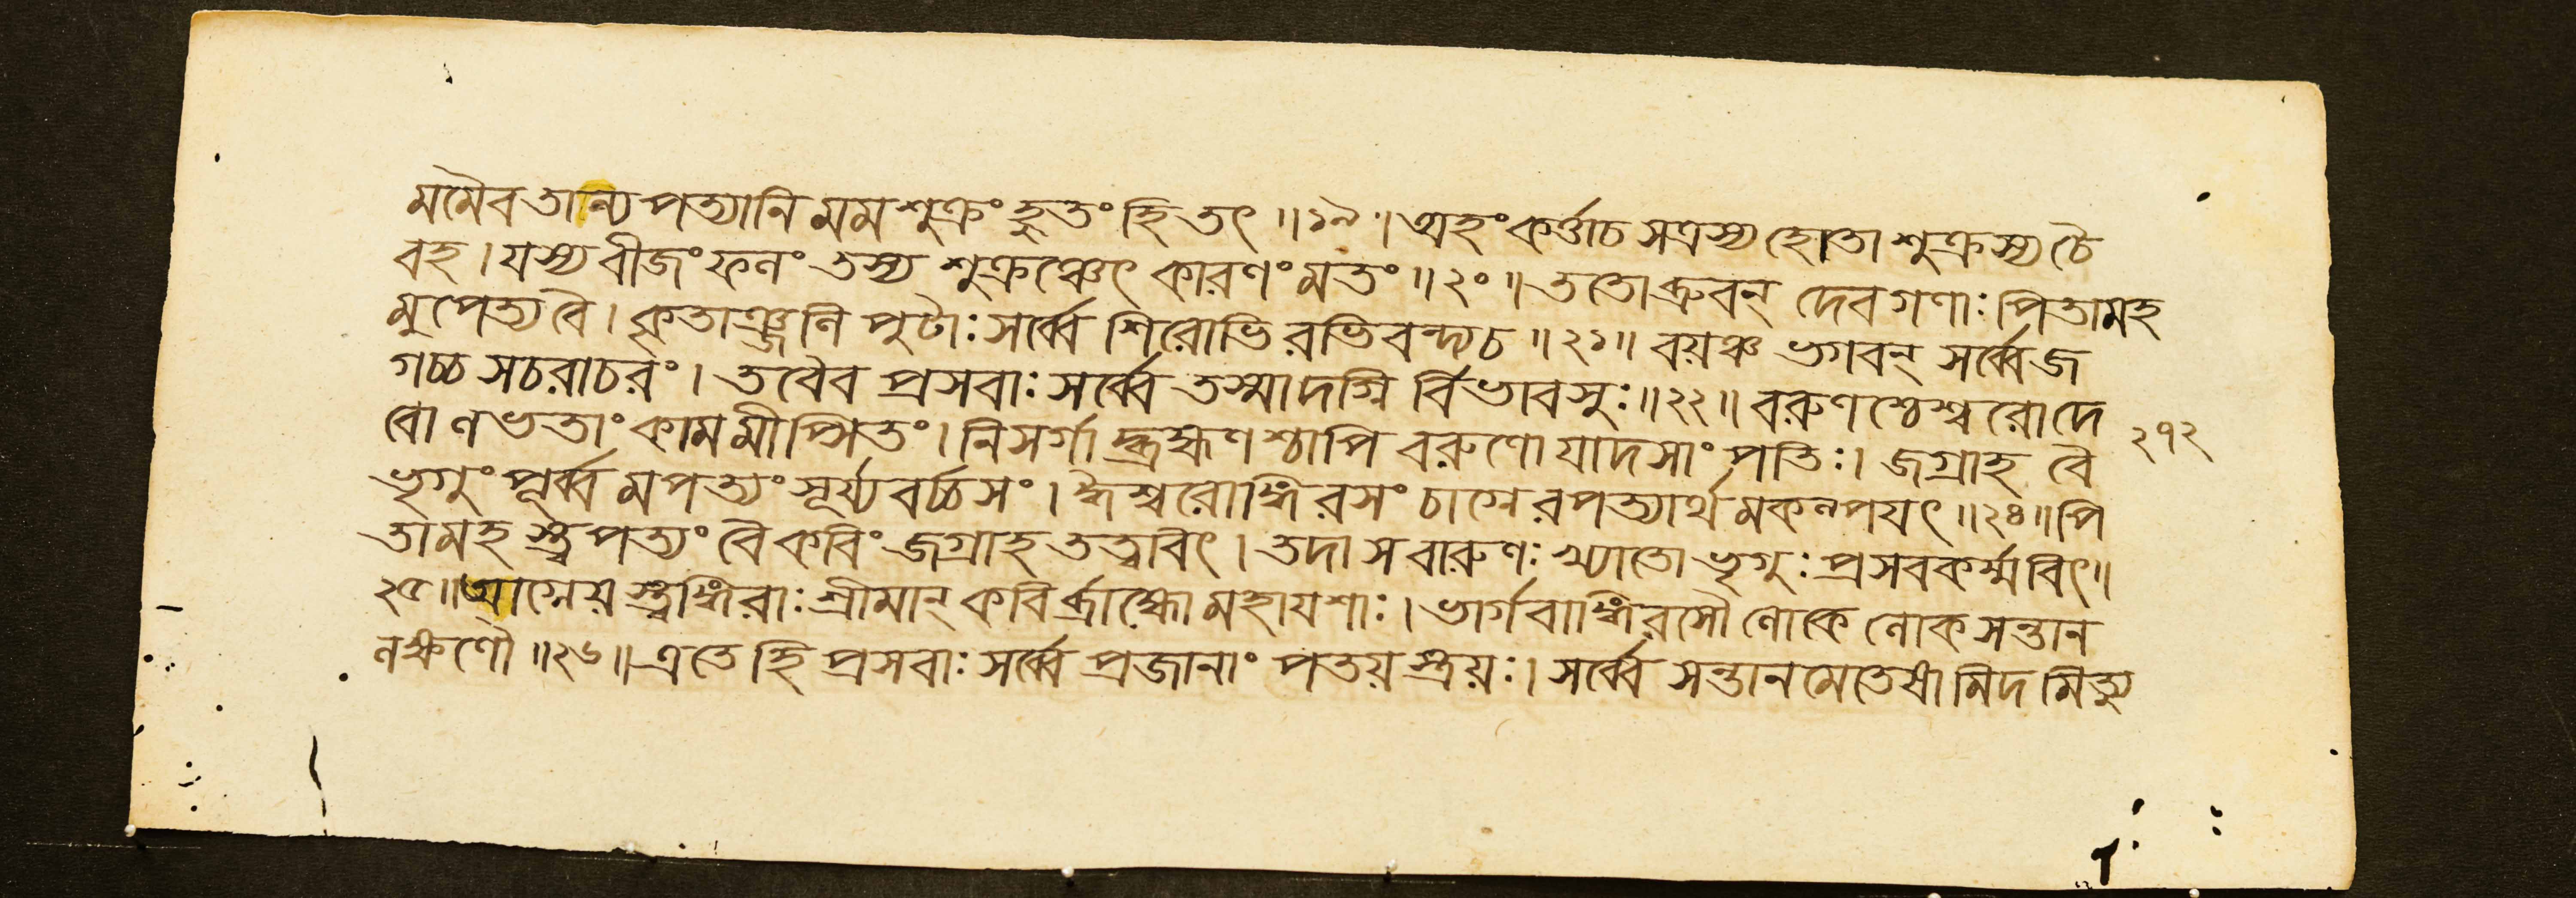 মমৈব তান্যপত্যানি মম শুক্রং হুতং হি তৎ ॥১৯॥ অহং কর্ত্তা চ সত্রস্য হোতা শুক্রস্য চৈ
বহ । যস্য বীজং ফলং তস্য শুক্রঞ্চেৎ কারণং মতং ॥২০॥ ততোব্রুবন্ দেবগণাঃ পিতামহ
মুপেত্য বৈ । কৃতাঞ্জলিপুটাঃ সর্ব্বে শিরোভিরভিবন্দ্য চ ॥২১॥ বয়ঞ্চ ভগবন্ সর্ব্বে জ
গচ্চ সচরাচরং । তবৈব প্রসবাঃ সর্ব্বে তস্মাদগ্নির্বিভাবসুঃ ॥২২॥ বরুণশ্চেশ্বরো দে
বো লভতাং কামমীপ্সিতং । নিসর্গাদ্ব্রহ্মণশ্চাপি বরুণো যাদসাং পতিঃ । জগ্রাহ বৈ
২৭২
ভৃগুং পূর্ব্বমপত্যং সূর্য্যবর্চ্চসং । ঈশ্বরোঙ্গিরসং চাগ্নেরপত্যার্থমকল্পয়ৎ ॥২৪॥ পি
তামহস্ত্বপত্যং বৈ কবিং জগ্রাহ তত্ত্ববিৎ । তদা স বারুণঃ খ্যাতো ভৃগুঃ প্রসবকর্ম্মবিৎ ॥
২৫॥ আগ্নেয়স্ত্বঙ্গিরাঃ শ্রীমান্ কবির্ব্রাহ্মো মহাযশাঃ । ভার্গবাঙ্গিরসৌ লোকে লোকসন্তান
লক্ষণৌ ॥২৬॥ এতে হি প্রসবাঃ সর্ব্বে প্রজানাং পতয়স্ত্রয়ঃ । সর্ব্বে সন্তানমেতেষামিদমিত্যু